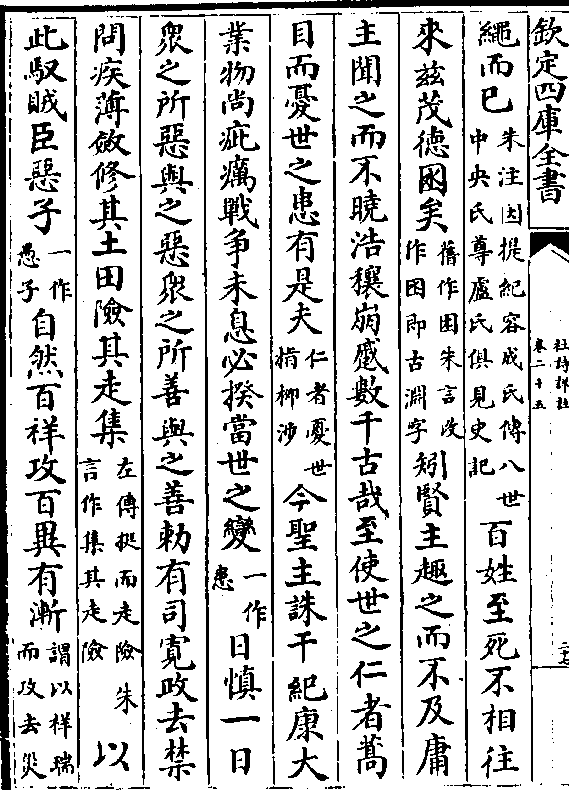 欽定四庫全書
杜詩詳註
卷二十五
繩而已朱注因提紀容成氏傳八世中央氏尊盧氏俱見史記百姓至死不相往
來兹茂德囦矣舊作困朱言改作囦即古淵字矧賢主趣之而不及庸
主聞之而不曉浩穰崩蹙數千古哉至使世之仁者蒿
目而憂世之患有是夫仁者憂世指柳渉今聖主誅干紀康大
業物尚疵癘戰争未息必揆當世之變一作患日慎一日
衆之所惡與之惡衆之所善與之善勅有司寛政去禁
問疾薄斂修其土田險其走集左傳挺而走險朱言作集其走險以
此馭賊臣惡子一作愚子自然百祥攻百異有漸謂以祥瑞而攻去災